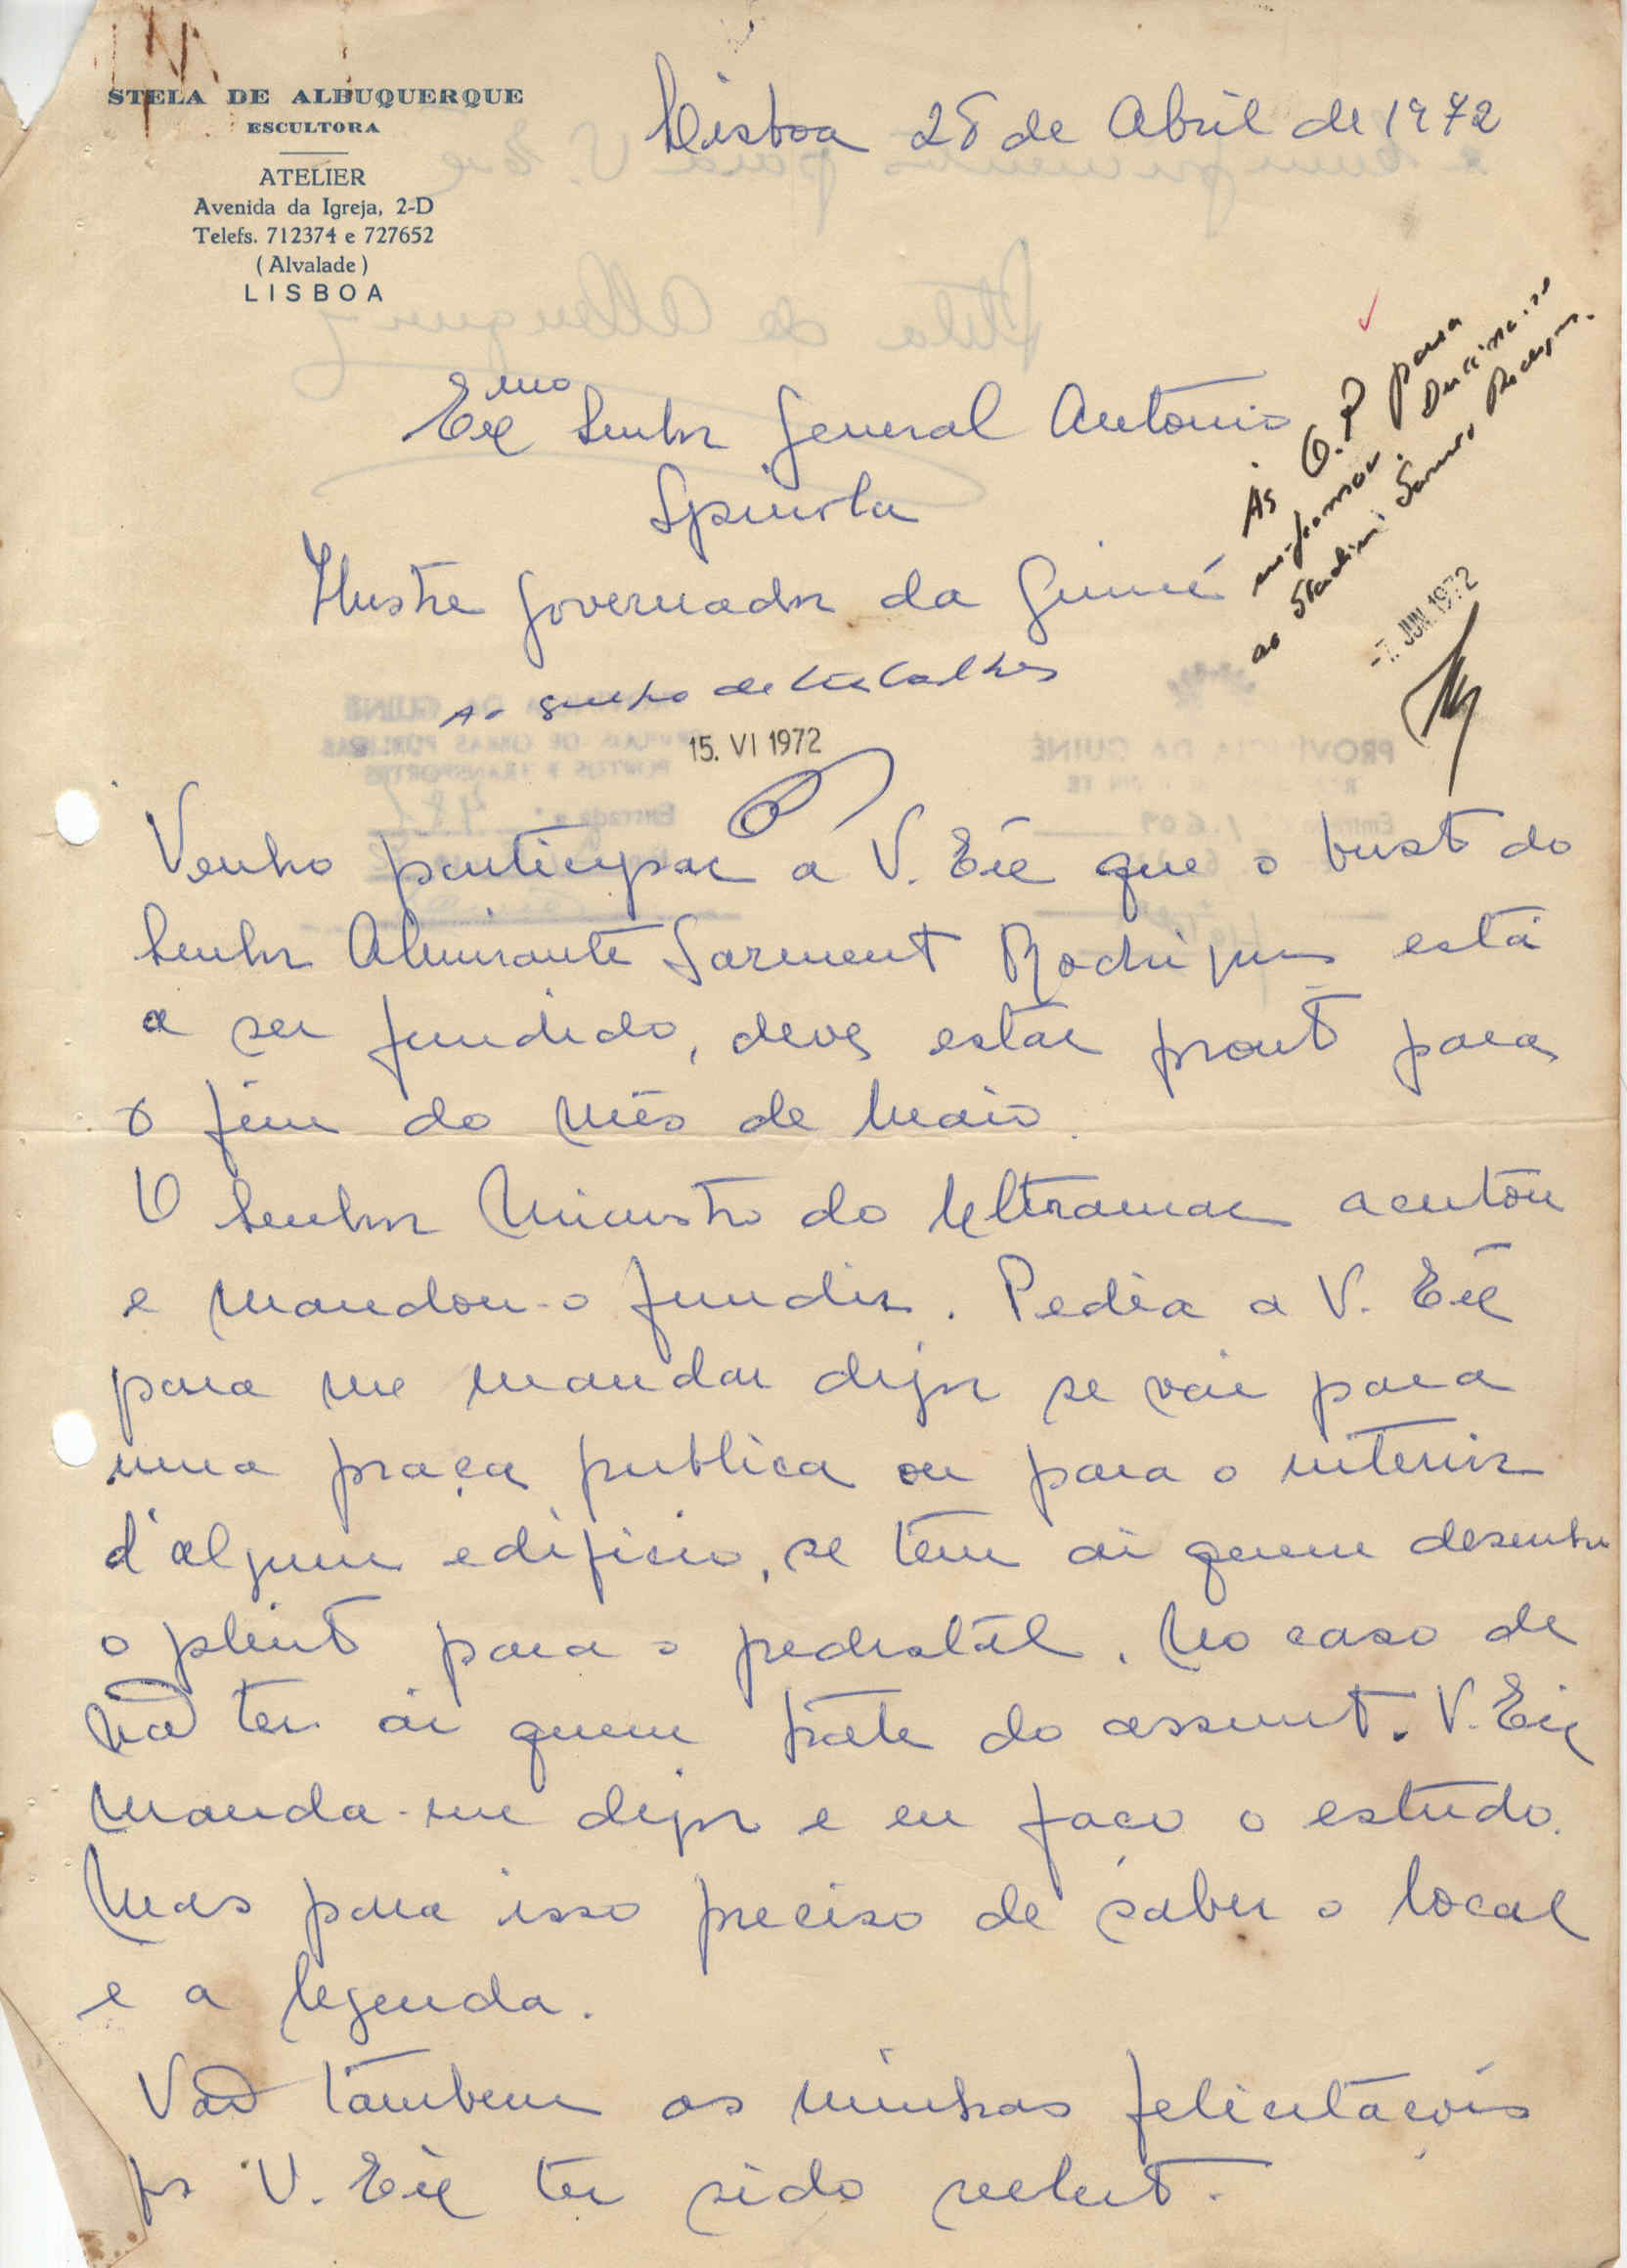 STELA DE ALBUQUERQUE
ESCULTORA
ATELIER
Avenida da Igreja, 2-D
Telefs. 712374 e 727652
(Alvalade)
LISBOA
Lisboa 28 de Abril de 1972
Exmo Senhor General Antonio
Spinola
Ilustre Governador da Guiné
Ás O.P para
informar.
ao Sarmento Rodrigues.
-7. JUN. 1972
Ao grupo de trabalhos
15. VI 1972
Venho participar a V. Exe que o busto do
Senhor Almirante Sarmento Rodrigues está
a ser fundido, deve estar pronto para
o fim do mês de Maio.
O Senhor Ministro do Ultramar aceitou
e mandou-o fundir. Pedia a V. Exe
para me mandar dizer se vai para
uma praça publica ou para o interior
d'algum edificio, se tem ai quem desenhe
o plinto para o pedestal. No caso de
não ter ai quem trate do assunto. V. Exe
manda-me dizer e eu faço o estudo.
Mas para isso preciso de saber o local
e a legenda.
Vão tambem as minhas felicitações
por V. Exe ter sido reeleito.